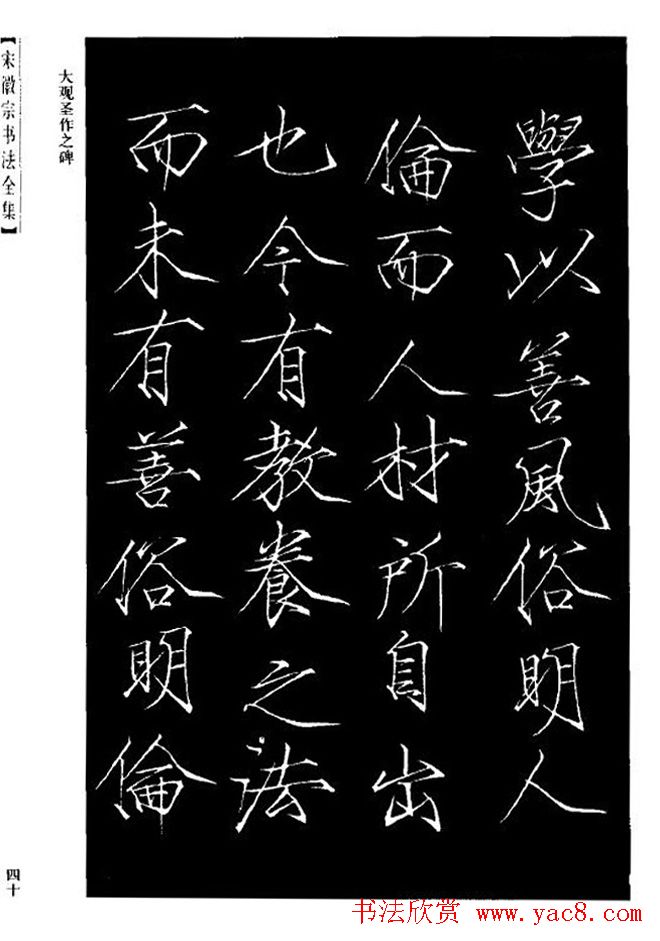 學以善風俗明人
倫而人材所自出
也今有教養之法
而未有善俗明倫
大观圣作之碑
【宋徽宗书法全集】
四十
书法欣赏 www.yac8.com